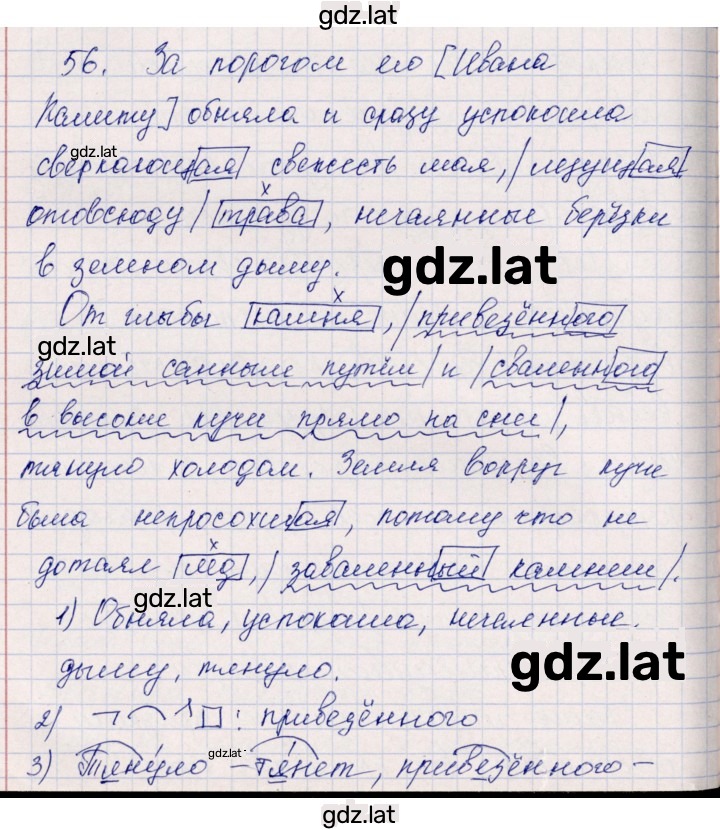 gdz.lat
56. За порогом его [Ивана
Калиту] обняла и сразу успокоила
gdz.lat
сверкающая свежесть мая, / лезущая
х
отовсюду / трава, нечаянные берёзки
в зеленом дыму. gdz.lat
х
От глыбы камня, / приведённого
gdz.lat
зимой санным путём / и / сваленного
в высокие кучи прямо на снег /,
тянуло холодом. Земля вокруг куч
была непросохшая, потому что не
х
дотаял лёд, / заваленный камнем /.
gdz.lat
1) Обняла, успокоила, нечаянные.
gdz.lat
дыму, тянуло.
2) : приведённого
gdz.lat
3) Тяну́ло – тя́нет, приведённого –
gdz.lat